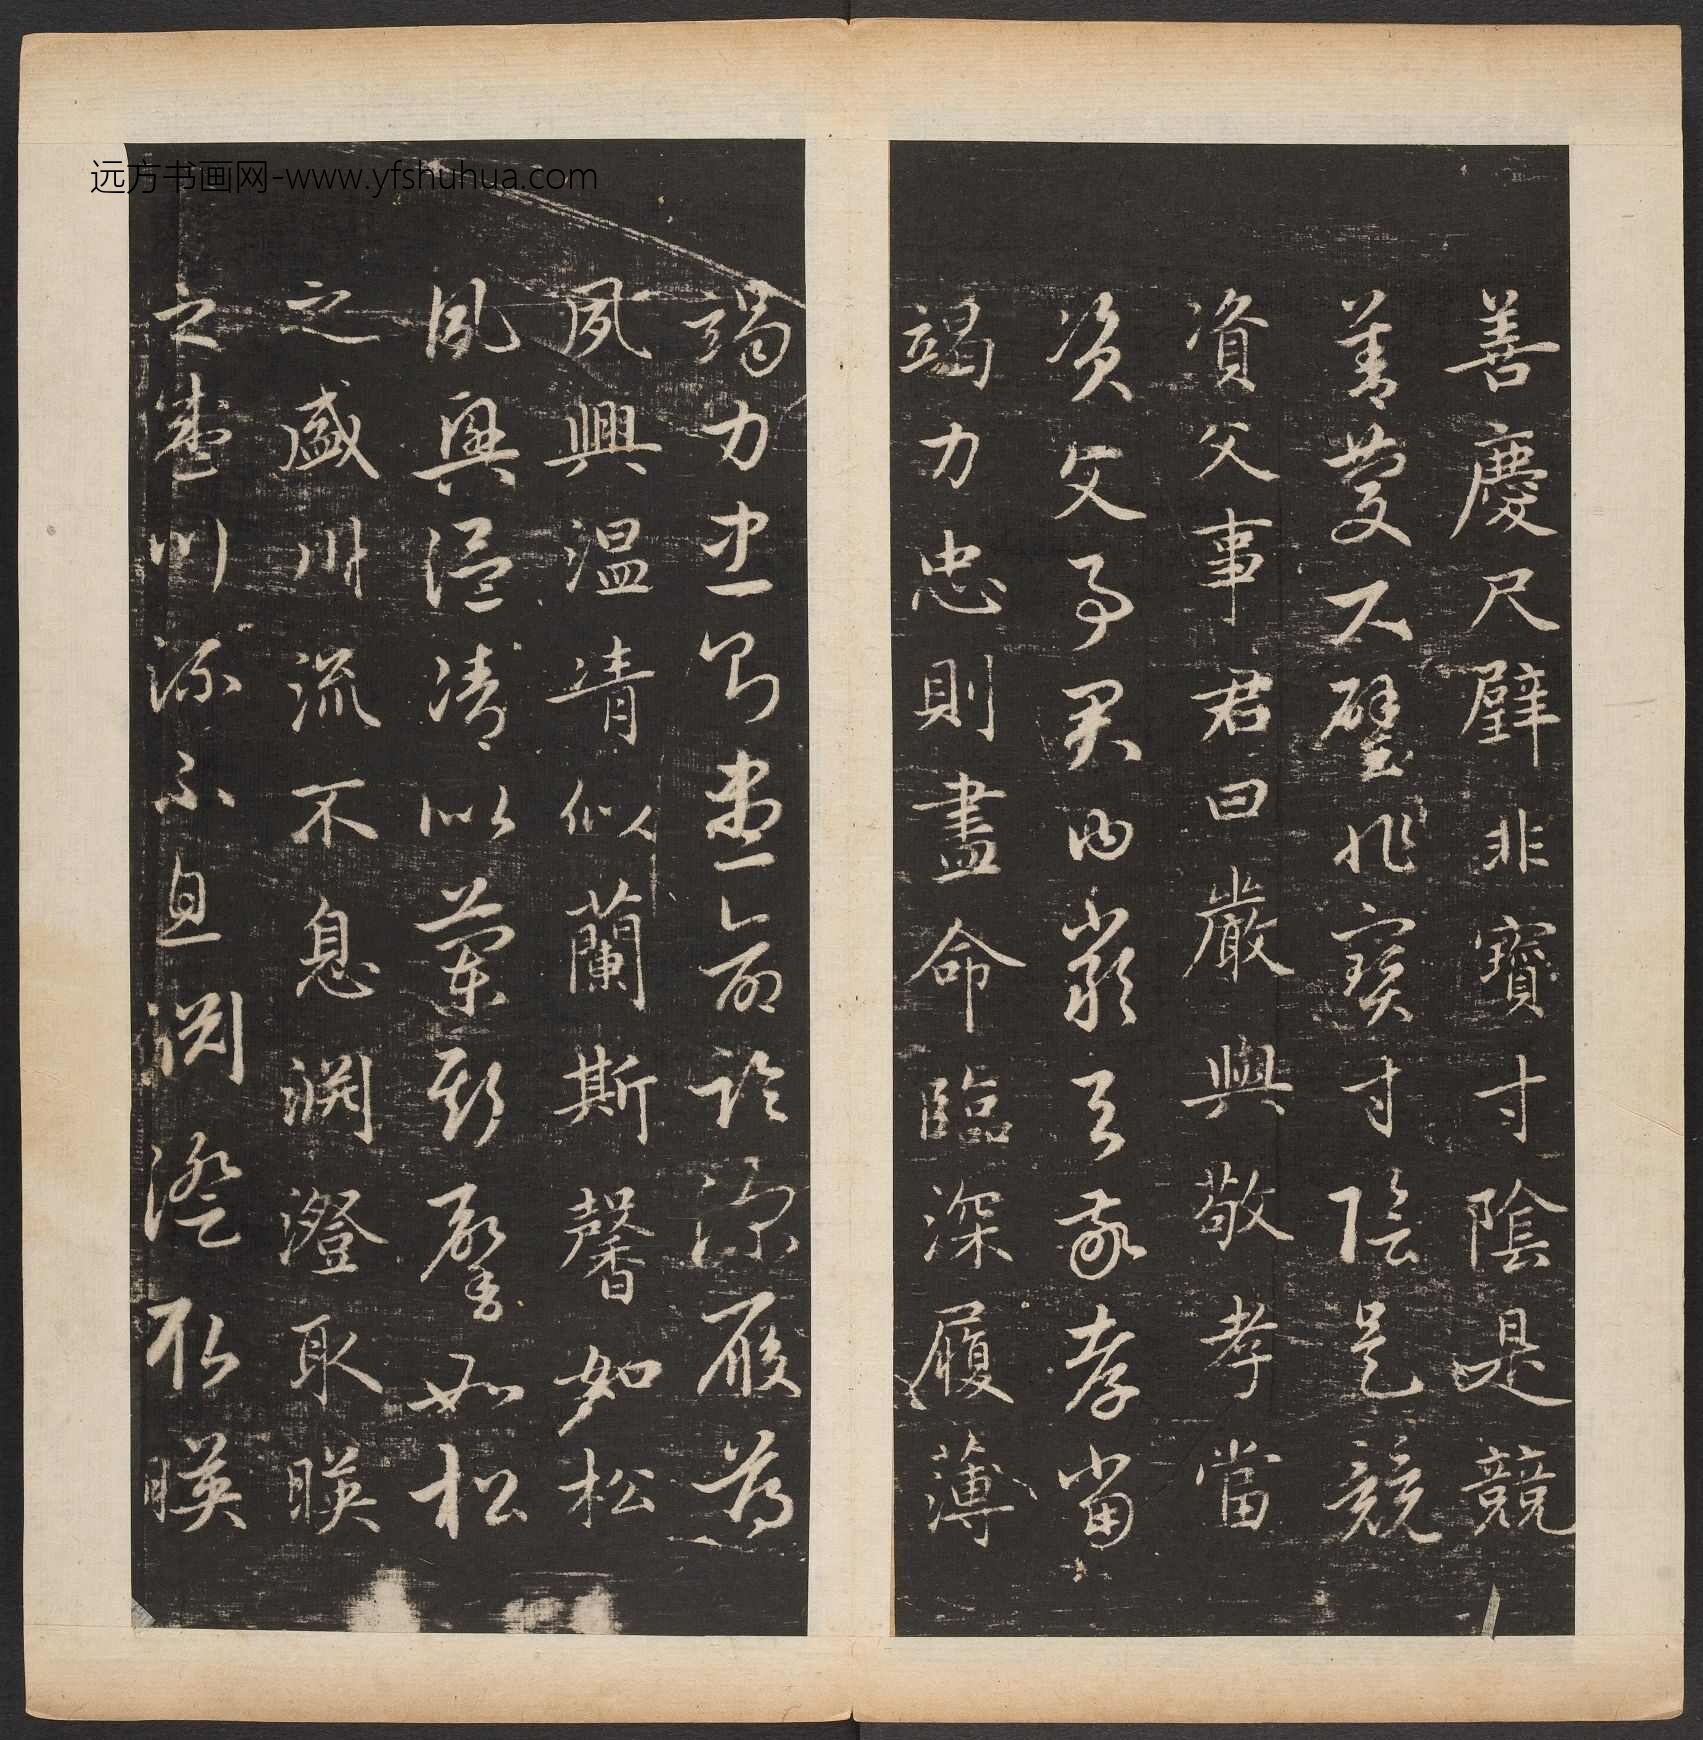 远方书画网-www.yfshuhua.com
善慶尺璧非寶寸陰是競
善慶尺璧非寶寸陰是競
資父事君曰嚴與敬孝當
資父事君曰嚴與敬孝當
竭力忠則盡命臨深履薄
竭力忠則盡命臨深履薄
夙興温凊似蘭斯馨如松
夙興温凊似蘭斯馨如松
之盛川流不息淵澄取暎
之盛川流不息淵澄取暎